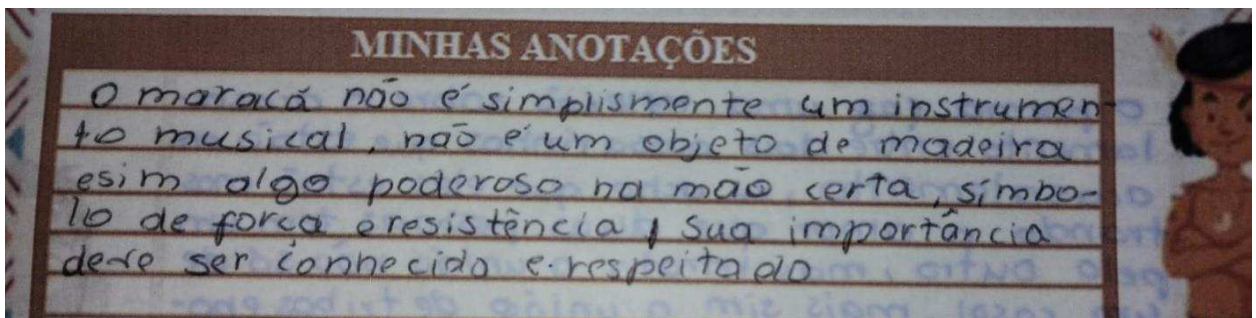 MINHAS ANOTAÇÕES
O maracá não é simplismente um instrumen-
to musical, não é um objeto de madeira
esim algo poderoso na mão certa, símbo-
lo de força eresistência, sua importância
deve ser conhecido e respeitado